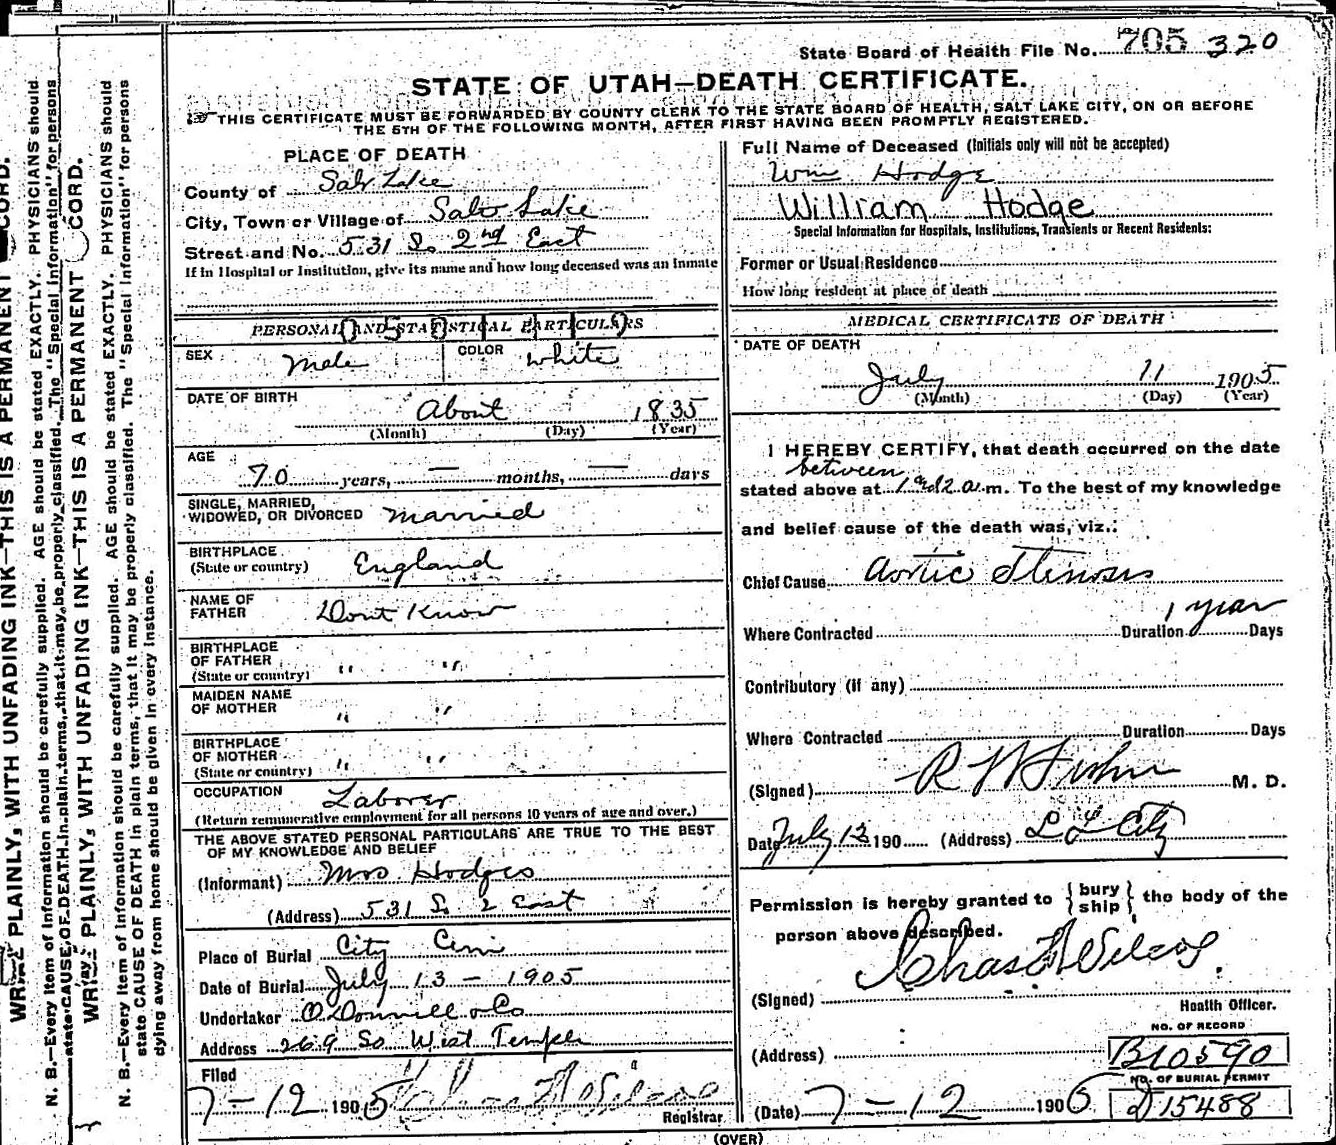 State Board of Health File No. 705 320
STATE OF UTAH—DEATH CERTIFICATE.
THIS CERTIFICATE MUST BE FORWARDED BY COUNTY CLERK TO THE STATE BOARD OF HEALTH, SALT LAKE CITY, ON OR BEFORE
THE 5TH OF THE FOLLOWING MONTH, AFTER FIRST HAVING BEEN PROMPTLY REGISTERED.
PLACE OF DEATH
County of Salt Lake
City, Town or Village of Salt Lake
Street and No. 531 So 2nd East
If in Hospital or Institution, give its name and how long deceased was an inmate
PERSONAL AND STATISTICAL PARTICULARS
SEX Male COLOR White
DATE OF BIRTH
About 1835
(Month) (Day) (Year)
AGE
70 years, — months, — days
SINGLE, MARRIED,
WIDOWED, OR DIVORCED Married
BIRTHPLACE
(State or country) England
NAME OF
FATHER Dont Know
BIRTHPLACE
OF FATHER
(State or country) " "
MAIDEN NAME
OF MOTHER " "
BIRTHPLACE
OF MOTHER
(State or country) " "
OCCUPATION Laborer
(Return remunerative employment for all persons 10 years of age and over.)
THE ABOVE STATED PERSONAL PARTICULARS ARE TRUE TO THE BEST
OF MY KNOWLEDGE AND BELIEF
(Informant) Mrs. Hodges
(Address) 531 So 2 East
Place of Burial City Cem
Date of Burial July 13 - 1905
Undertaker O'Donnell & Co
Address 269 So West Temple
Filed
7-12 1905 Chas F Wilcox
Registrar
Full Name of Deceased (Initials only will not be accepted)
Wm Hodge
William Hodge
Special Information for Hospitals, Institutions, Transients or Recent Residents:
Former or Usual Residence
How long resident at place of death
MEDICAL CERTIFICATE OF DEATH
DATE OF DEATH
July 11 1905
(Month) (Day) (Year)
I HEREBY CERTIFY, that death occurred on the date
between
stated above at 1 and 2 a.m. To the best of my knowledge
and belief cause of the death was, viz.:
Chief Cause Aortic Stenosis
1 year
Where Contracted Duration Days
Contributory (if any)
Where Contracted Duration Days
(Signed) R W Fisher M. D.
Date July 12 190 (Address) S L City
Permission is hereby granted to {bury ship} the body of the
person above described.
(Signed) Chas F Wilcox
Health Officer.
NO. OF RECORD
(Address) B10590
NO. OF BURIAL PERMIT
(Date) 7-12 1905 D15488
(OVER)
WRITE PLAINLY, WITH UNFADING INK—THIS IS A PERMANENT RECORD.
N. B.—Every item of information should be carefully supplied. AGE should be stated EXACTLY. PHYSICIANS should
state CAUSE OF DEATH in plain terms, that it may be properly classified. The "Special Information" for persons
PLAINLY, WITH UNFADING INK—THIS IS A PERMANENT CORD.
N. B.—Every item of information should be carefully supplied. AGE should be stated EXACTLY. PHYSICIANS should
state CAUSE OF DEATH in plain terms, that it may be properly classified. The "Special Information" for persons
dying away from home should be given in every instance.